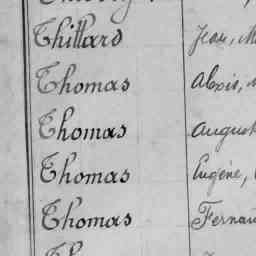 Thillard Jean, M
Thomas Alexis,
Thomas August
Thomas Eugène,
Thomas Fernan
Th